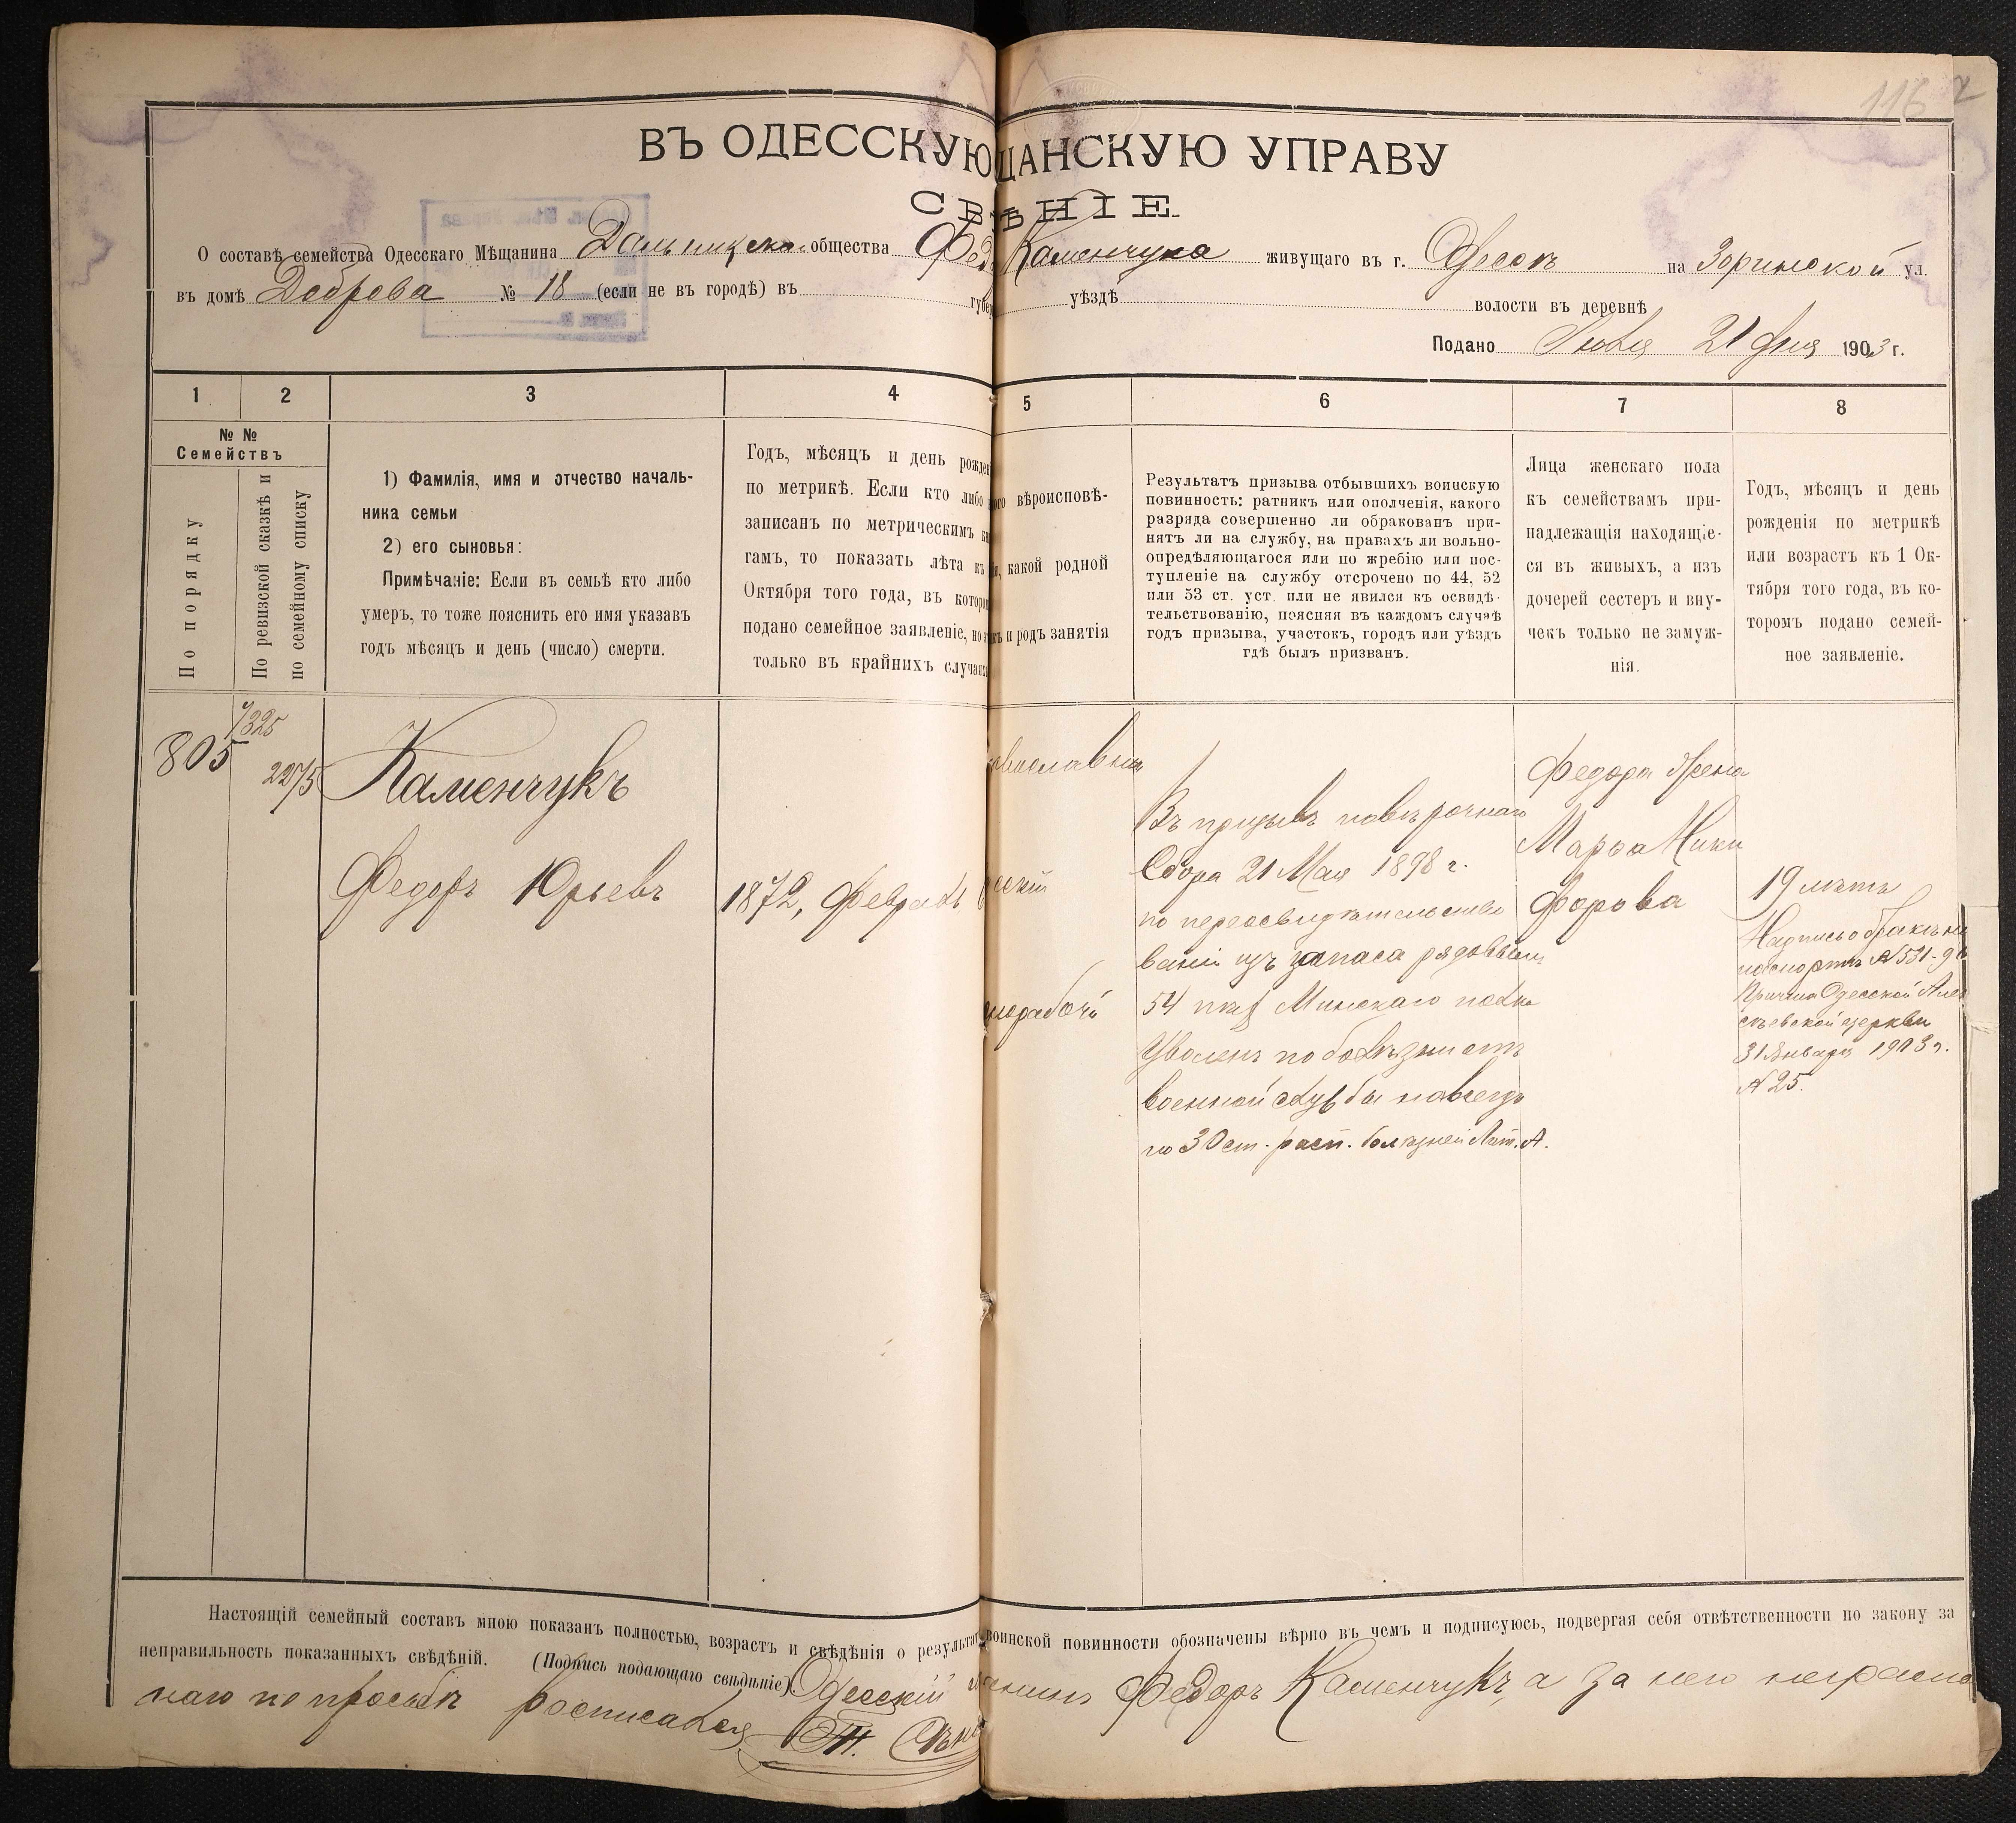 116
ВЪ ОДЕССКУЮ ЩАНСКУЮ УПРАВУ
СВѢНІЕ
О составѣ семейства Одесскаго Мѣщанина Дальницкаго общества Фед Каменчука живущаго въ г. Одессѣ на Зоринской ул.
въ домѣ Доброва № 18 (если не въ городѣ) въ губер уѣздѣ волости въ деревнѣ
Подано 21 дня 1903 г.
1 2 3 4 5 6 7 8
№ №
Семействъ
По порядку
По ревизской сказкѣ и
по семейному списку
1) Фамилія, имя и отчество началь-
ника семьи
2) его сыновья:
Примѣчаніе: Если въ семьѣ кто либо
умеръ, то тоже пояснить его имя указавъ
годъ мѣсяцъ и день (число) смерти.
Годъ, мѣсяцъ и день рожден
по метрикѣ. Если кто либо
записанъ по метрическимъ кн
гамъ, то показать лѣта къ
Октября того года, въ которо
подано семейное заявленіе, но
только въ крайнихъ случаях
ого вѣроисповѣ-
какой родной
и родъ занятія
Результатъ призыва отбывшихъ воинскую
повинность: ратникъ или ополченія, какого
разряда совершенно ли обракованъ при-
нятъ ли на службу, на правахъ ли вольно-
опредѣляющагося или по жребію или пос-
тупленіе на службу отсрочено по 44, 52
или 53 ст. уст. или не явился къ освидѣ-
тельствованію, поясняя въ каждомъ случаѣ
годъ призыва, участокъ, городъ или уѣздъ
гдѣ былъ призванъ.
Лица женскаго пола
къ семействамъ при-
надлежащія находящіе-
ся въ живыхъ, а изъ
дочерей сестеръ и вну-
чекъ только не замуж-
нія.
Годъ, мѣсяцъ и день
рожденія по метрикѣ
или возрастъ къ 1 Ок-
тября того года, въ ко-
торомъ подано семей-
ное заявленіе.
805
2275
Каменчукъ
Федоръ Юрьевъ
1872, Февраль
вославный
сскій
норабочій
Въ призывъ повѣрочнаго
Сбора 21 Мая 1898 г.
по переосвидѣтельство
ваніи изъ запаса рядовымъ
54 пѣх. Минскаго полка
Уволенъ по болѣзни отъ
военной службы навсегда
по 30 ст. расп. болѣзней Лит. А.
Федора жена
Марья Ники
форова
19 лѣтъ
Надпись о бракѣ на
паспортѣ № 531
Причта Одесской Але
сѣевской церкви
31 Января 1903 г.
№ 25.
Настоящій семейный составъ мною показанъ полностью, возрастъ и свѣдѣнія о результат воинской повинности обозначены вѣрно въ чемъ и подписуюсь, подвергая себя отвѣтственности по закону за
неправильность показанныхъ свѣдѣній. (Подпись подающаго свѣдѣніе) Одесскій щанинъ Федоръ Каменчукъ, а за него неграмот
наго по просьбѣ росписался